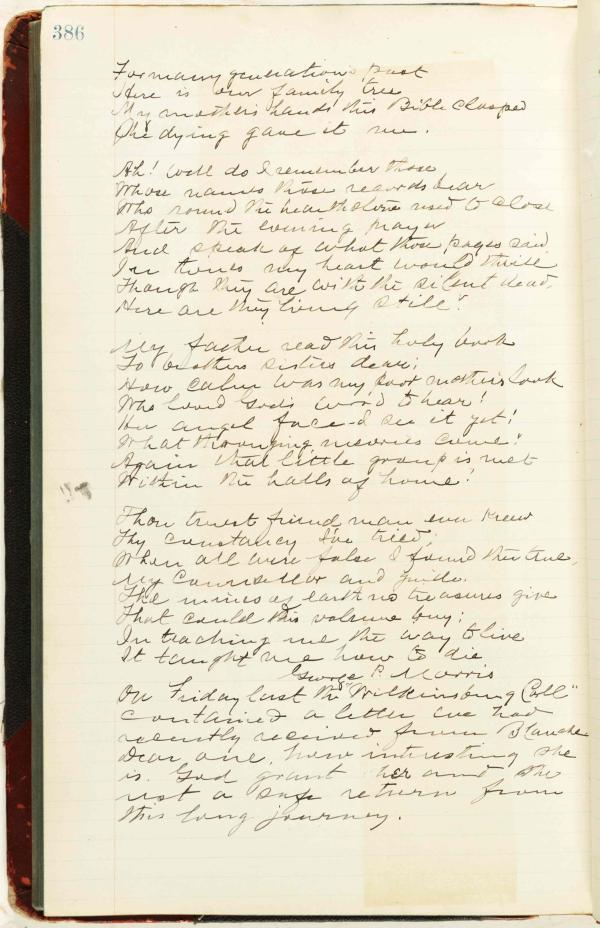 386
For many generations past
Here is our family tree
My mother's hands this Bible clasped
She dying gave it me.
Ah! well do I remember those
Whose names these records bear
Who round the hearthstone used to close
After the evening prayer
And speak of what those pages said
In tones my heart would thrill
Though they are with the silent dead,
Here are they living still!
My father read this holy book
To brothers sisters dear;
How calm was my poor mother's look
Who loved God's word to hear!
Her angel face - I see it yet!
What thronging memories come!
Again that little group is met
Within the halls of home!
Thou truest friend man ever knew
Thy constancy I've tried;
When all were false I found thee true,
My Counsellor and guide.
The mines of earth no treasures give
That could this volume buy;
In teaching me the way to live
It taught me how to die
George P. Morris
On Friday last the "Wilkinsburg Call"
contained a letter we had
recently received from Blanche
Dear one, how interesting she
is. God grant her and the
rest a safe return from
this long journey.